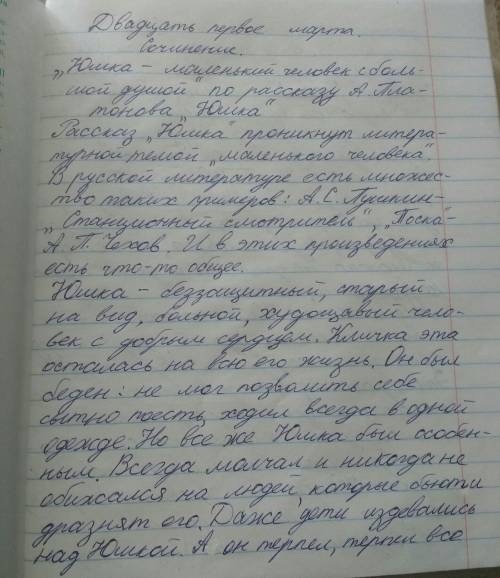 Двадцать первое марта.
Сочинение.
„Юшка – маленький человек с боль-
шой душой" по рассказу А. Пла-
тонова „Юшка"
Рассказ „Юшка" проникнут литера-
турной темой „маленького человека".
В русской литературе есть множес-
тво таких примеров: А.С. Пушкин –
„Станционный смотритель", „Тоска" –
А.П. Чехов. И в этих произведениях
есть что-то общее.
Юшка – беззащитный, старый
на вид, больной, худощавый чело-
век с добрым сердцем. Кличка эта
осталась на всю его жизнь. Он был
беден: не мог позволить себе
сытно поесть, ходил всегда в одной
одежде. Но все же Юшка был особен-
ным. Всегда молчал и никогда не
обижался на людей, которые бьют и
дразнят его. Даже дети издевались
над Юшкой. А он терпел, терпел все